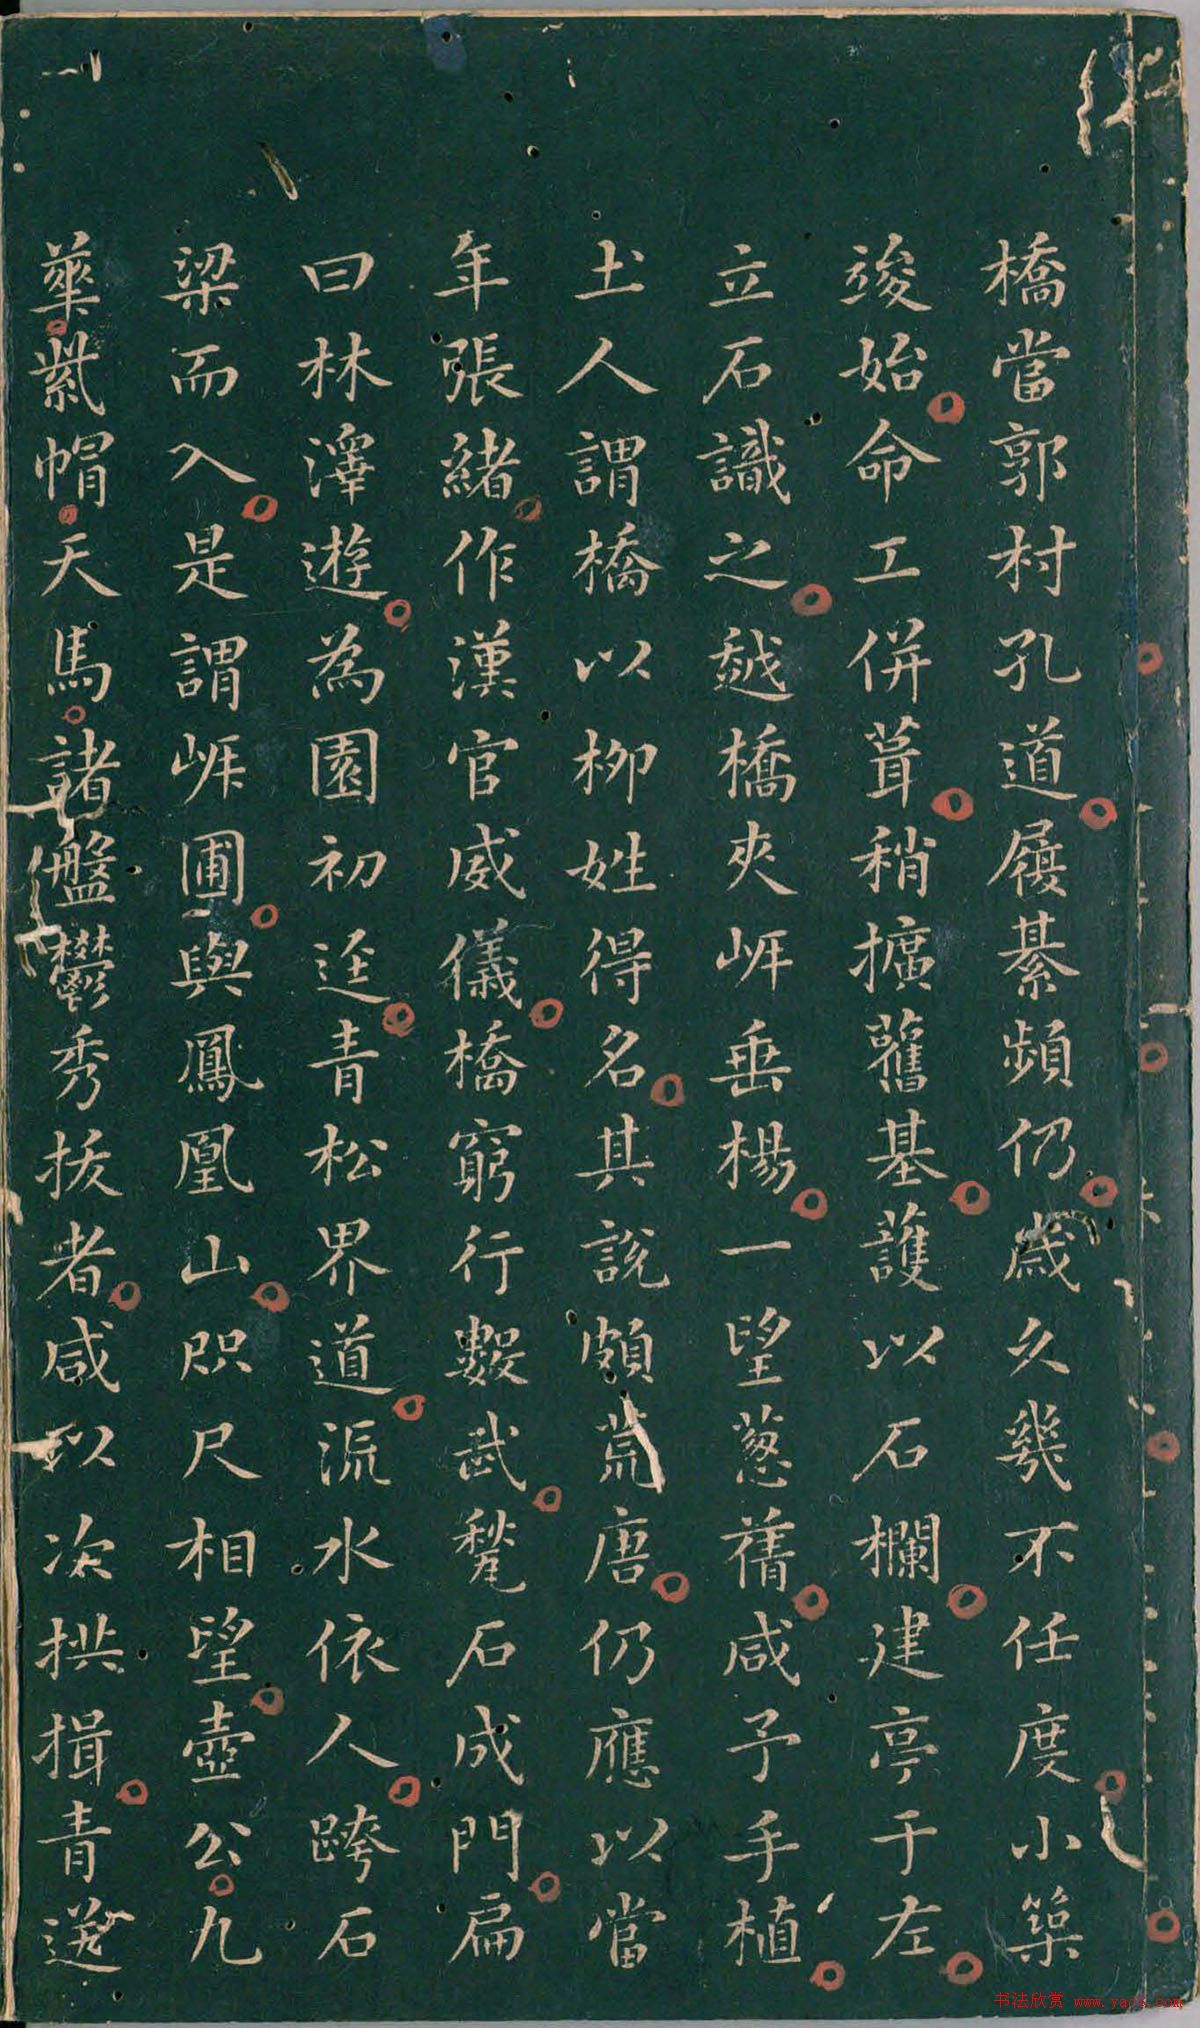 橋當郭村孔道屐綦頻仍歲久幾不任度小築
竣始命工併葺稍擴舊基護以石欄建亭于左
立石識之越橋夾岸垂楊一望蔥蒨咸予手植
土人謂橋以柳姓得名其說頗荒唐仍應以當
年張緒作漢官威儀橋窮行數武甃石成門扁
曰林澤遊為園初逕青松界道流水依人跨石
梁而入是謂岞圃與鳳凰山咫尺相望壺公九
華紫帽天馬諸盤鬱秀拔者咸以次拱揖青送
书法欣赏 www.yac8.com